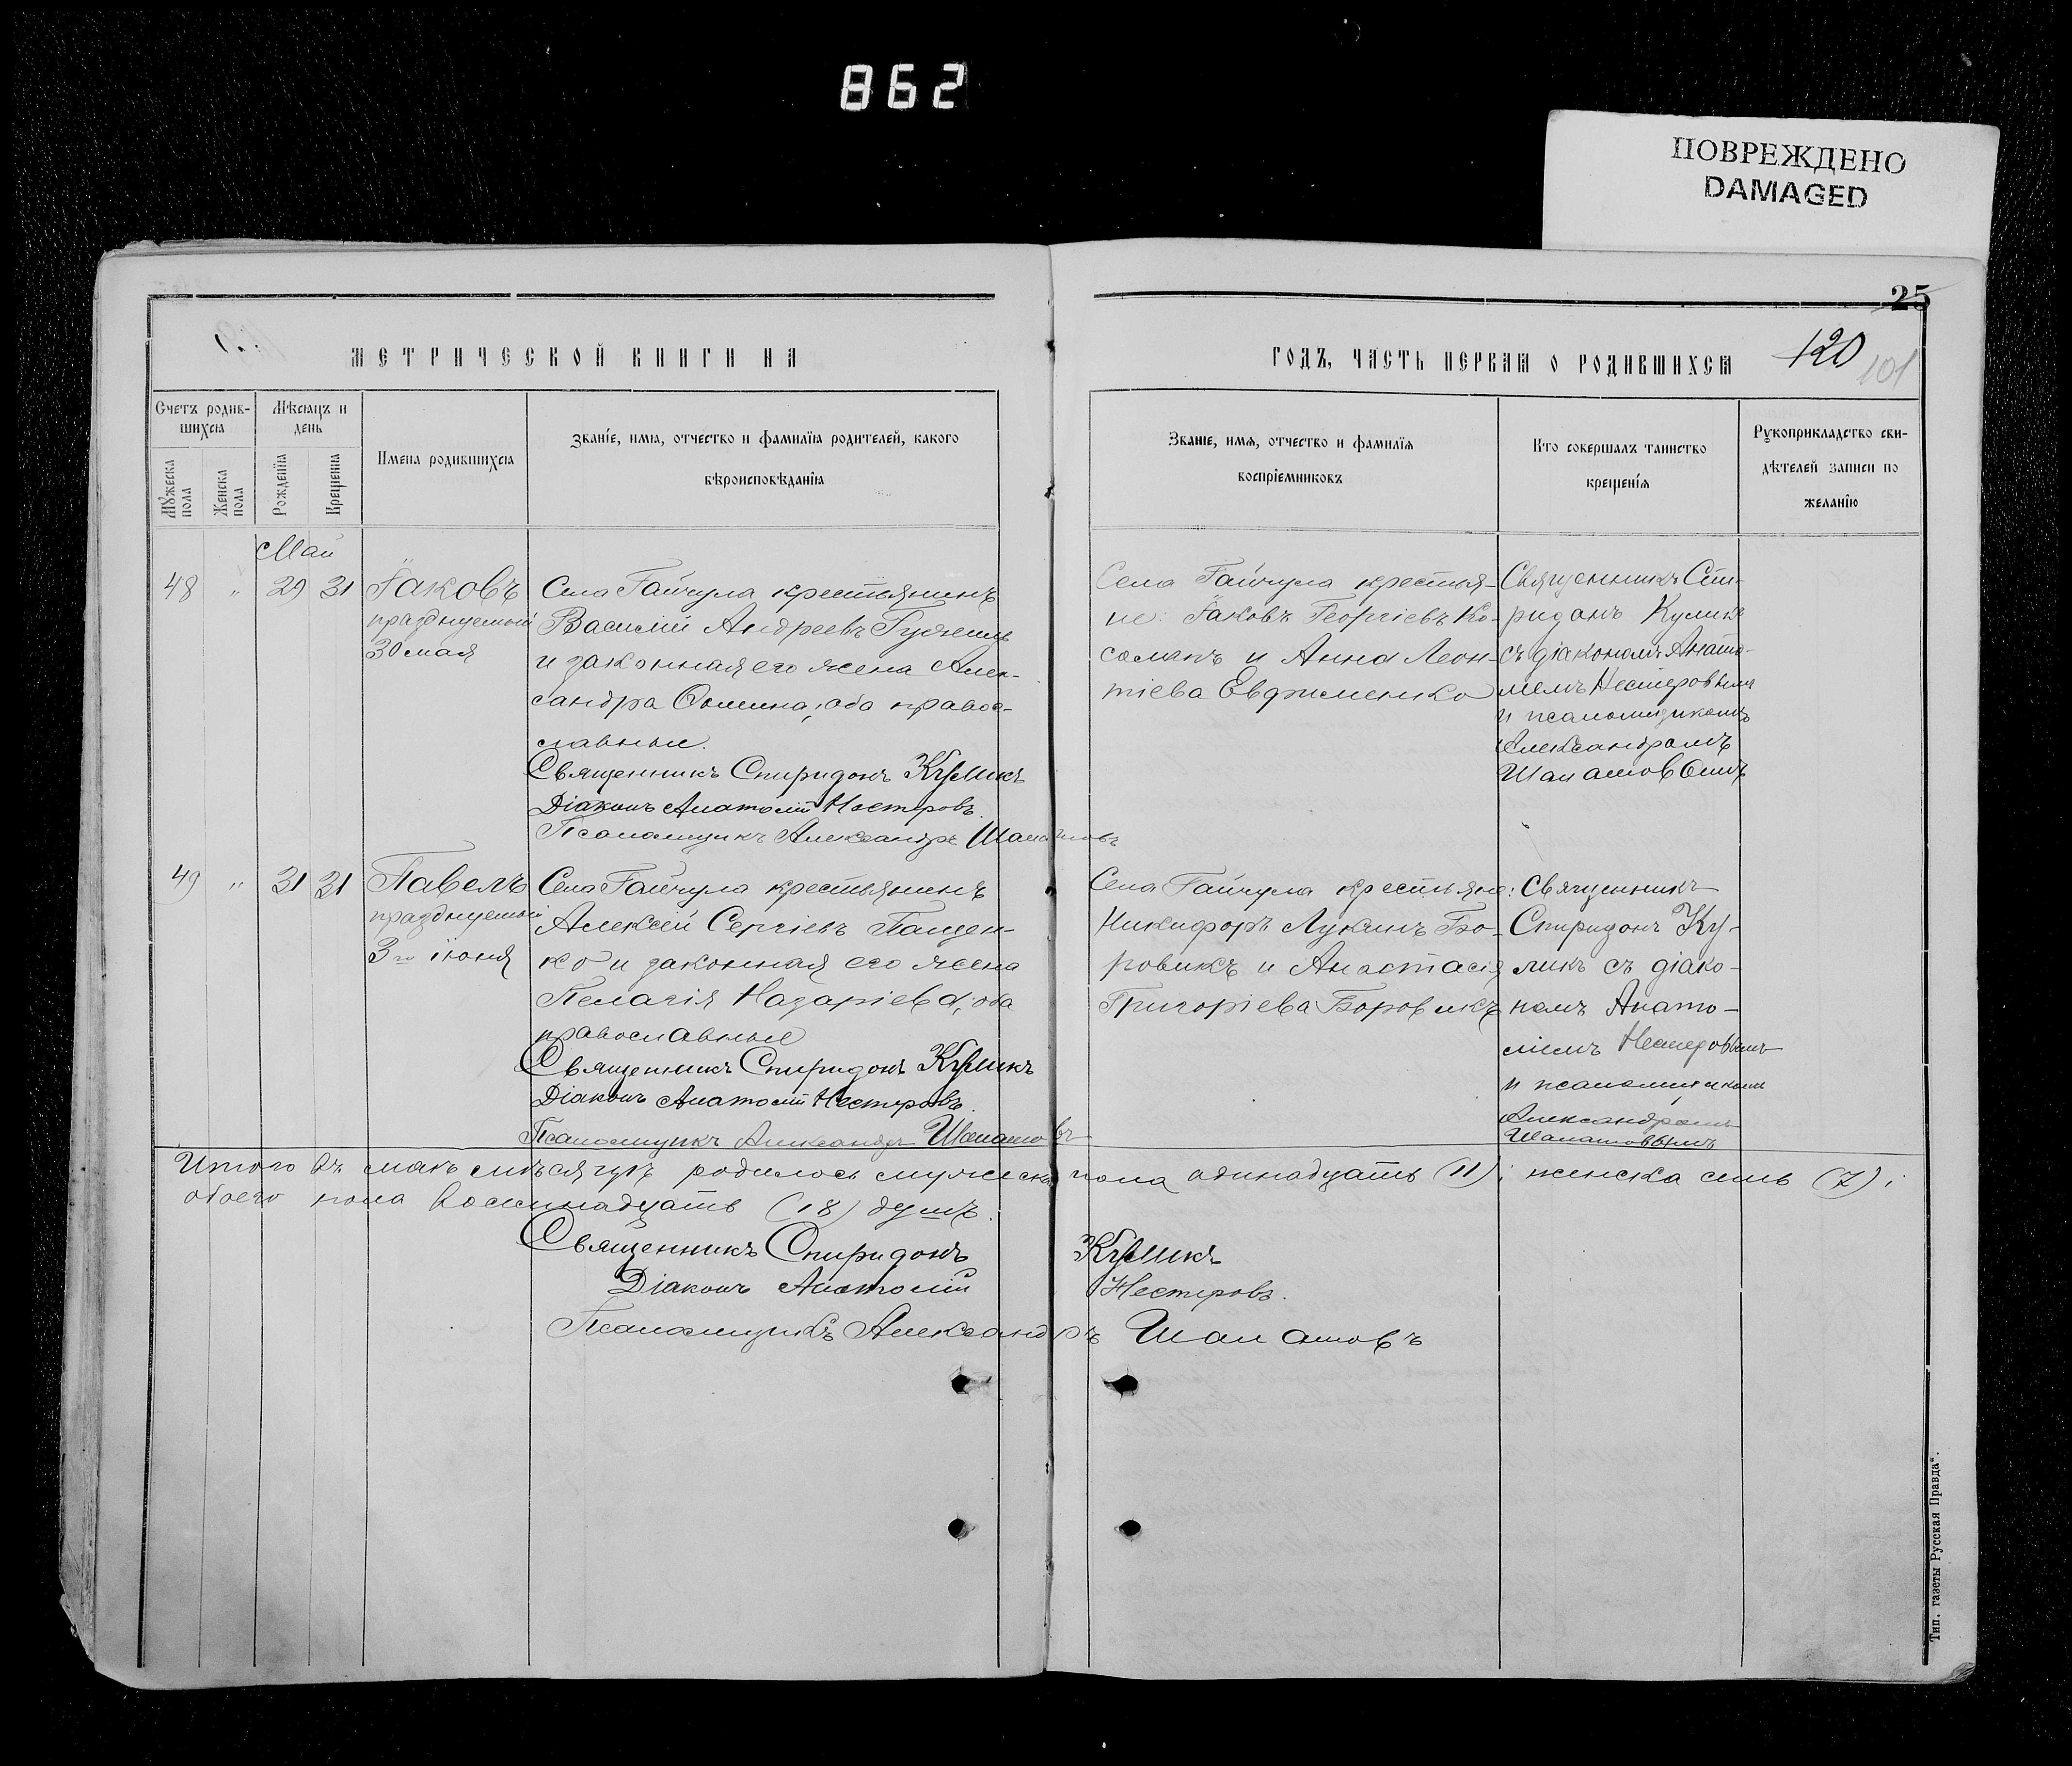 862
ПОВРЕЖДЕНО
DAMAGED
25
МЕТРИЧЕСКОЙ КНИГИ НА
ГОДЪ, ЧАСТЬ ПЕРВАЯ О РОДИВШИХСЯ
120
101
Счетъ родив-
шихся
Мужеска пола
Женска пола
Мѣсяцъ и
день
Рожденїя
Крещенїя
Имена родившихся
Званїе, имя, отчество и фамилїя родителей, какого
вѣроисповѣданїя
Званїе, имя, отчество и фамилїя
воспрїемниковъ
Кто совершалъ таинство
крещенїя
Рукоприкладство сви-
дѣтелей записи по
желанїю
Май
48 " 29 31
Іаковъ
празднуемый
30 мая
Села Гайчула крестьянинъ
Василій Андреевъ
и законная его жена Алек-
сандра Ѳомина, оба право-
славные.
Священникъ Спиридонъ Куликъ
Діаконъ Анатолій Нестеровъ.
Псаломщикъ Александръ Шалашовъ
Села Гайчула крестья-
не: Іаковъ Георгіевъ Ко-
солапъ и Анна Леон-
тіева Евфименко
Священникъ Спи-
ридонъ Куликъ
съ діакономъ Анато-
ліемъ Нестеровымъ
и псаломщикомъ
Александромъ
Шалашовымъ
49 " 31 31
Павелъ
празднуемый
3го іюня
Села Гайчула крестьянинъ
Алексѣй Сергіевъ Пащен-
ко и законная его жена
Пелагія Назаріева, оба
православные
Священникъ Спиридонъ Куликъ
Діаконъ Анатолій Нестеровъ.
Псаломщикъ Александръ Шалашовъ
Села Гайчула крестьяне:
Никифоръ Лукинъ Бо-
ровикъ и Анастасія
Григоріева Боровикъ
Священникъ
Спиридонъ Ку-
ликъ съ діако-
номъ Анато-
ліемъ Нестеровымъ
и псаломщикомъ
Александромъ
Шалашовымъ
Итого въ маѣ мѣсяцѣ родилось мужеска пола одинадцать (11); женска семь (7);
обоего пола восемнадцать (18) душъ.
Священникъ Спиридонъ Куликъ
Діаконъ Анатолій Нестеровъ.
Псаломщикъ Александръ Шалашовъ
Тип. газеты Русская Правда".